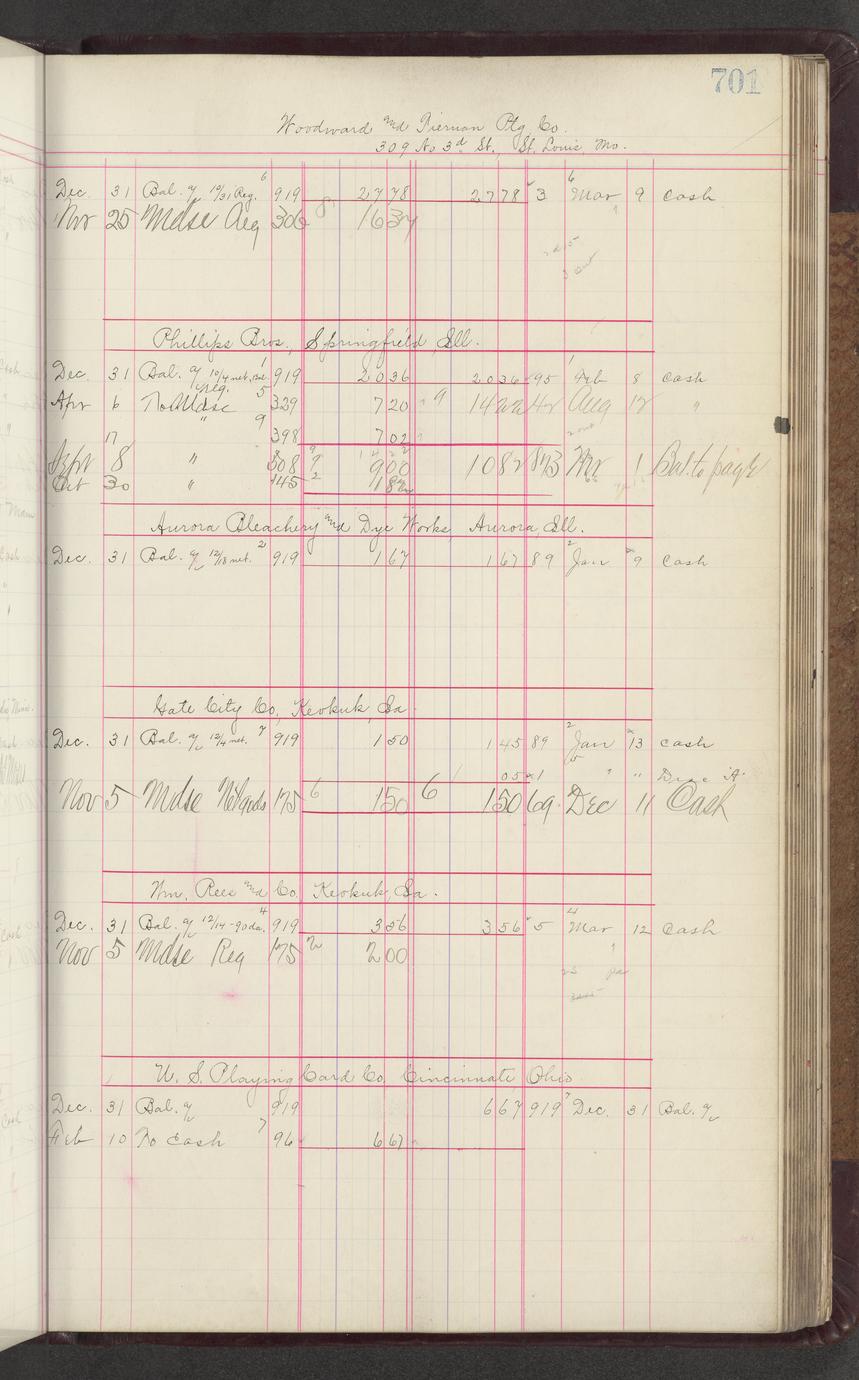 701
Woodward and Tiernan Ptg Co.
309 No 3d St., St. Louis, Mo.
Dec. 31 Bal. 10/31 Reg. 6 919 2778 2778 3 6 Mar 9 cash
Nov 25 Mdse Reg 306 8 1637 "
Phillips Bros., Springfield, Ill.
Dec. 31 Bal. 10/4 net, 1 919 2036 2036 95 1 Feb 8 cash
Apr 6 To Mdse 5 329 720 9 1422 Aug 12 "
17 " 9 398 702
Sept 8 " 508 9 900 1082 873 Nov 1 Bal. to page
Oct 30 " 145 2 182
Aurora Bleachery and Dye Works, Aurora, Ill.
Dec. 31 Bal. 12/18 net. 2 919 167 167 89 2 Jan 9 cash
Gate City Co, Keokuk, Ia.
Dec. 31 Bal. 12/4 net. 7 919 150 145 89 2 Jan 13 cash
05 1 " "
Nov 5 Mdse 175 6 150 6 150 69 Dec 11 Cash
Wm. Rees and Co. Keokuk, Ia.
Dec. 31 Bal. 12/14 - 90 da. 4 919 356 356 5 4 Mar 12 cash
Nov 5 Mdse Reg 175 2 200 "
U. S. Playing Card Co, Cincinnate, Ohio
Dec. 31 Bal. 919 667 919 7 Dec. 31 Bal.
Feb 10 To cash 7 96 667